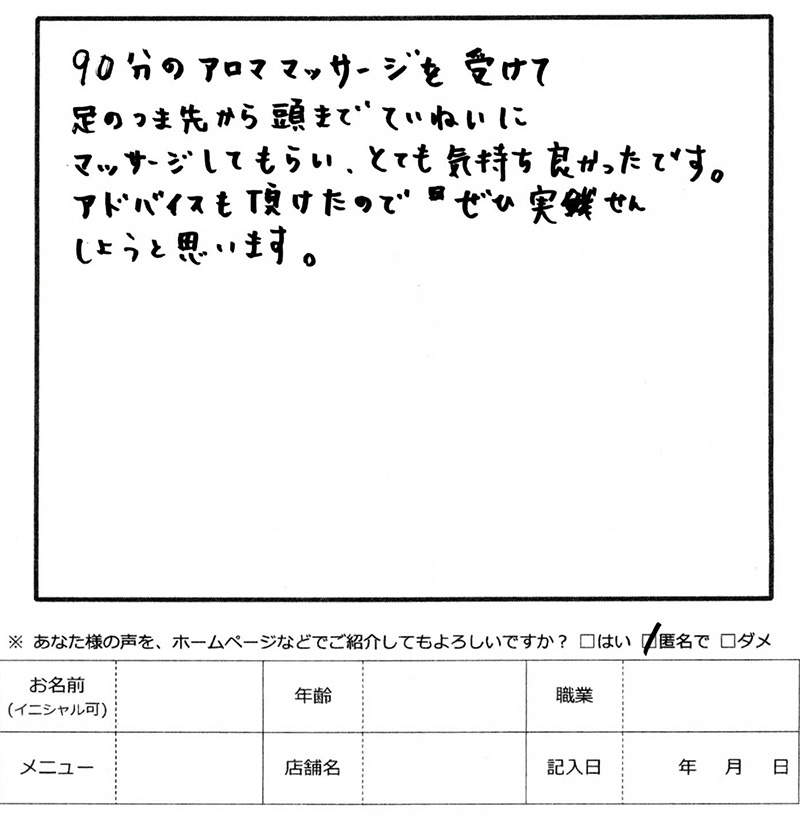 90分のアロママッサージを受けて
足のつま先から頭までていねいに
マッサージしてもらい、とても気持ち良かったです。
アドバイスも頂けたので ぜひ実践せん
しようと思います。
※ あなた様の声を、ホームページなどでご紹介してもよろしいですか? □はい □匿名で □ダメ
お名前 年齢 職業
(イニシャル可)
メニュー 店舗名 記入日 年 月 日